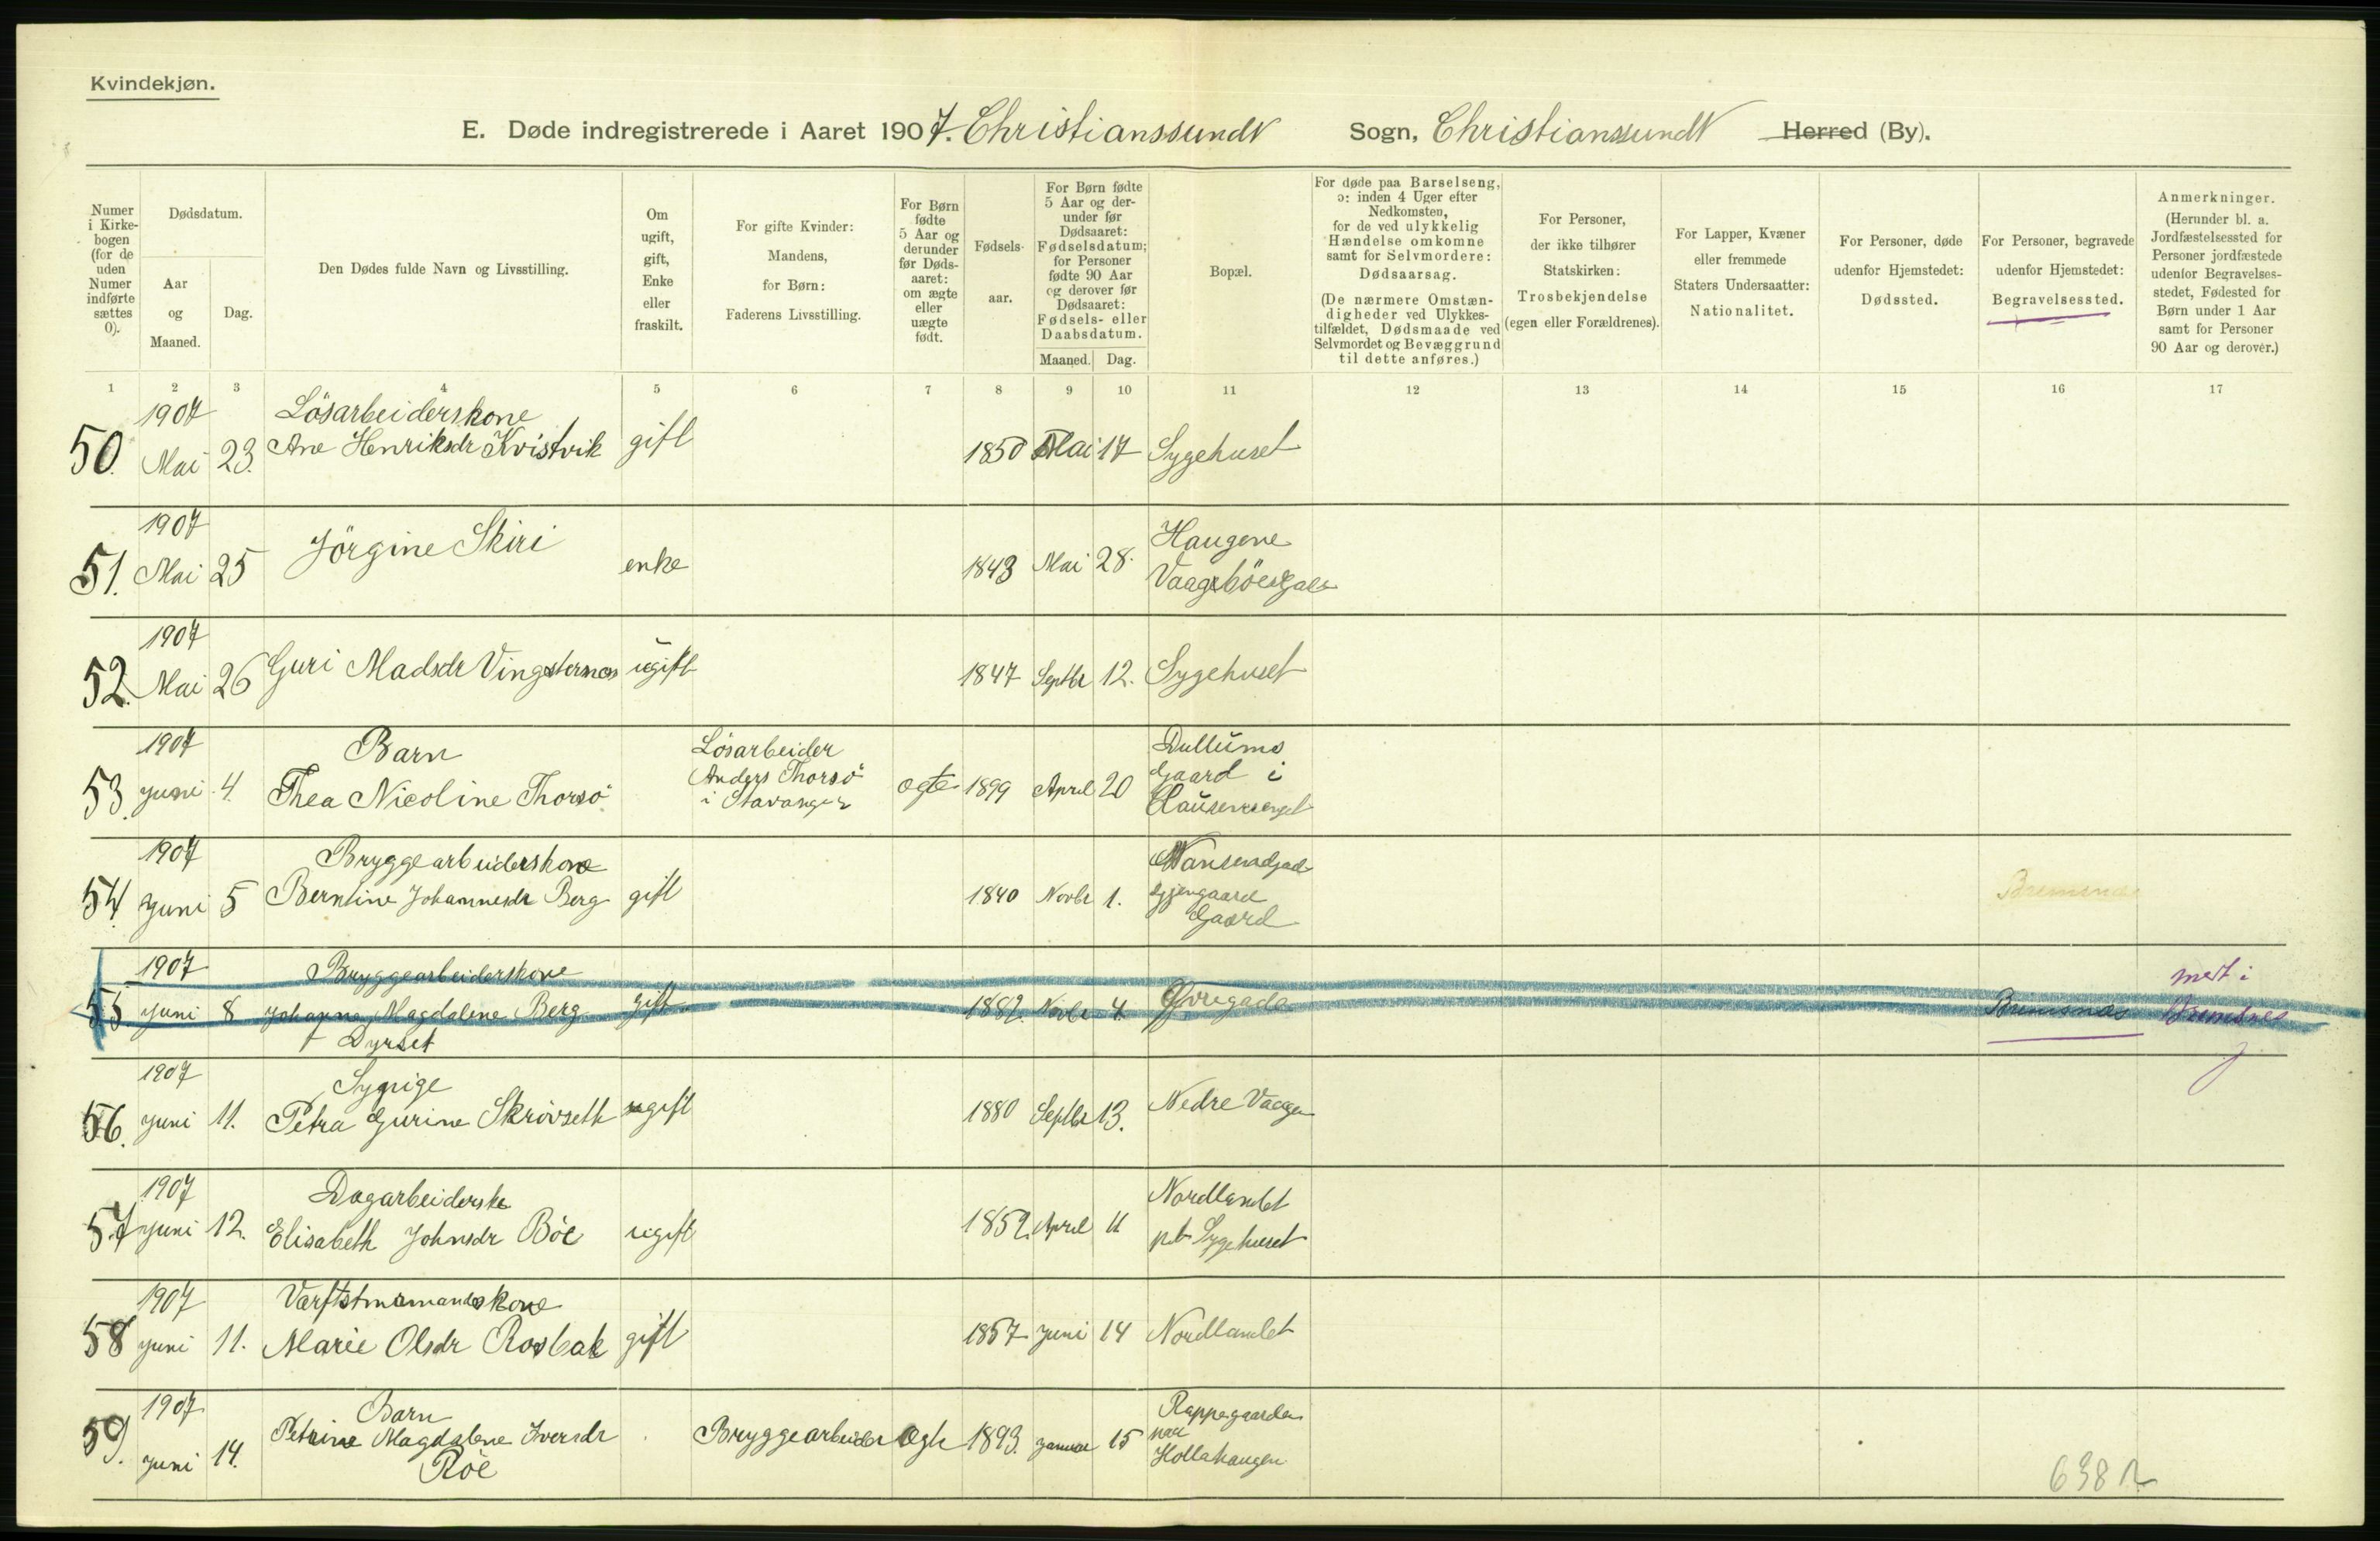 Kvindekjøn.
E. Døde indregistrerede i Aaret 1907. Christianssund N Sogn, Christianssund N Herred (By).
Numer i Kirkebogen (for de uden Numer indførte sættes 0).
Dødsdatum.
Aar og Maaned.
Dag.
Den Dødes fulde Navn og Livsstilling.
Om ugift, gift, Enke eller fraskilt.
For gifte Kvinder: Mandens, for Børn: Faderens Livsstilling.
For Børn fødte 5 Aar og derunder før Dødsaaret: om ægte eller uægte født.
Fødselsaar.
For Børn fødte 5 Aar og derunder før Dødsaaret: Fødselsdatum; for Personer fødte 90 Aar og derover før Dødsaaret: Fødsels- eller Daabsdatum.
Maaned. Dag.
Bopæl.
For døde paa Barselseng, ɔ: inden 4 Uger efter Nedkomsten, for de ved ulykkelig Hændelse omkomne samt for Selvmordere: Dødsaarsag.
(De nærmere Omstændigheder ved Ulykkestilfældet, Dødsmaade ved Selvmordet og Bevæggrund til dette anføres.)
For Personer, der ikke tilhører Statskirken: Trosbekjendelse (egen eller Forældrenes).
For Lapper, Kvæner eller fremmede Staters Undersaatter: Nationalitet.
For Personer, døde udenfor Hjemstedet: Dødssted.
For Personer, begravede udenfor Hjemstedet: Begravelsessted.
Anmerkninger.
(Herunder bl. a. Jordfæstelsessted for Personer jordfæstede udenfor Begravelsesstedet, Fødested for Børn under 1 Aar samt for Personer 90 Aar og derover.)
1 2 3 4 5 6 7 8 9 10 11 12 13 14 15 16 17
1907 Lösarbeiderskone
50. Mai 23. Ane Henriksdr Kvistvik gift 1850 Mai 17 Sygehuset
1907 Haugene
51. Mai 25 Jörgine Skiri enke 1843 Mai 28. Vaageböes
1907
52. Mai 26 Guri Madsdr Vingsternes ugift 1847 Septbr 12. Sygehuset
1907 Barn Lösarbeider Dullums
53. Juni 4. Thea Nicoline Thorsö Anders Thorsö i Stavanger ægte 1899 April 20 Gaard i Clausenvenget
1907 Bryggearbeiderskone
54. Juni 5 Berntine Johannesdr Berg gift 1840 Novbr 1. Gaard Bremsnes
1907 Bryggearbeiderskone
55 Juni 8 Johanne Magdalene Berg gift 1882 Novbr 4. Øvregade Bremsnes med i Bremsnes
f Dyrset
1907 Sypige
56. Juni 11. Petra Gurine Skrövseth ugift 1880 Septbr 13. Nedre Vaagen
1907 Dagarbeiderske Nordlandet
57 Juni 12. Elisabeth Johnsdr Böe ugift 1852. April 11 pt Sygehuset
1907
58 Juni 11. Marie Olsdr Rosbak gift 1857 Juni 14 Nordlandet
1907 Barn Rappegaarden
59. Juni 14. Petrine Magdalene Iversdr Bryggearbeider ægte 1893. Januar 15 paa Hollahaugen
Röe
638